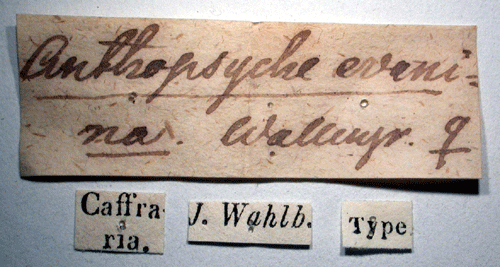 Anthopsyche evani=
na. Wallengr. ♀
Caffra-
ria.
J. Wahlb.
Type